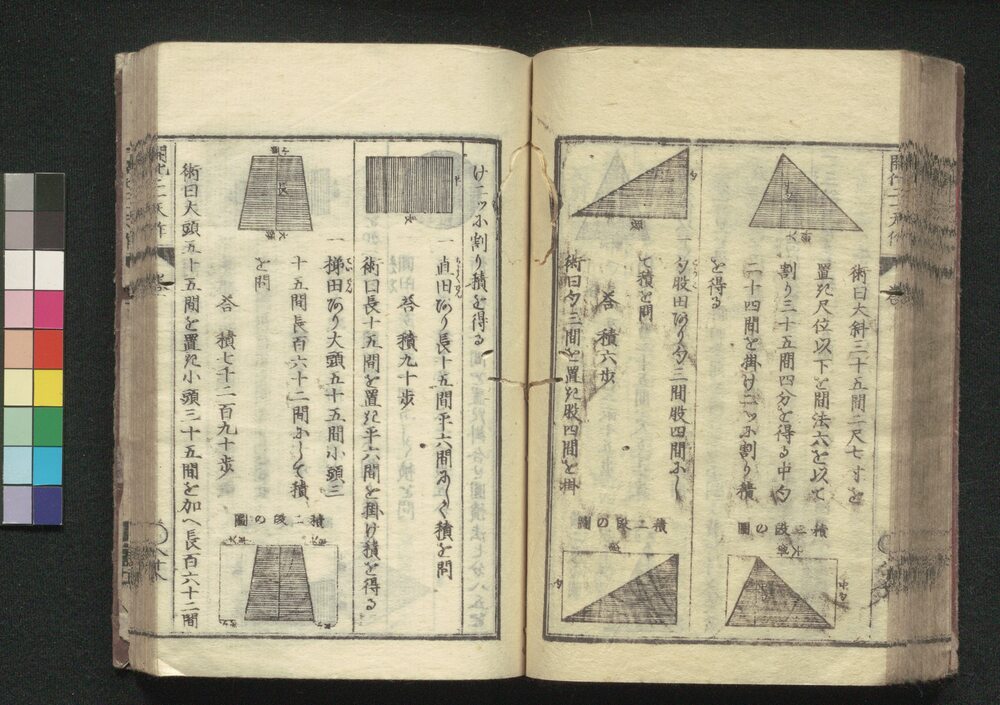 術曰大斜三十五間二尺七寸を
置き尺位以下を間法六を以て
割り三十五間四分を得る中勾
二十四間を掛け二ッに割り積
を得る
積二段の圖
大斜
中勾
一勾股田あり勾三間股四間にし
て積を問
答 積六歩
術曰勾三間を置き股四間を掛
勾
股
積二段の圖
股
勾
け二ッに割り積を得る
一直田あり長十五間平六間にして積を問
答 積九十歩
術曰長十五間を置き平六間を掛け積を得る
一梯田あり大頭五十五間小頭三
十五間長百六十二間にして積
を問
答 積七千二百九十歩
積二段の圖
術曰大頭五十五間を置き小頭三十五間を加へ長百六十二間